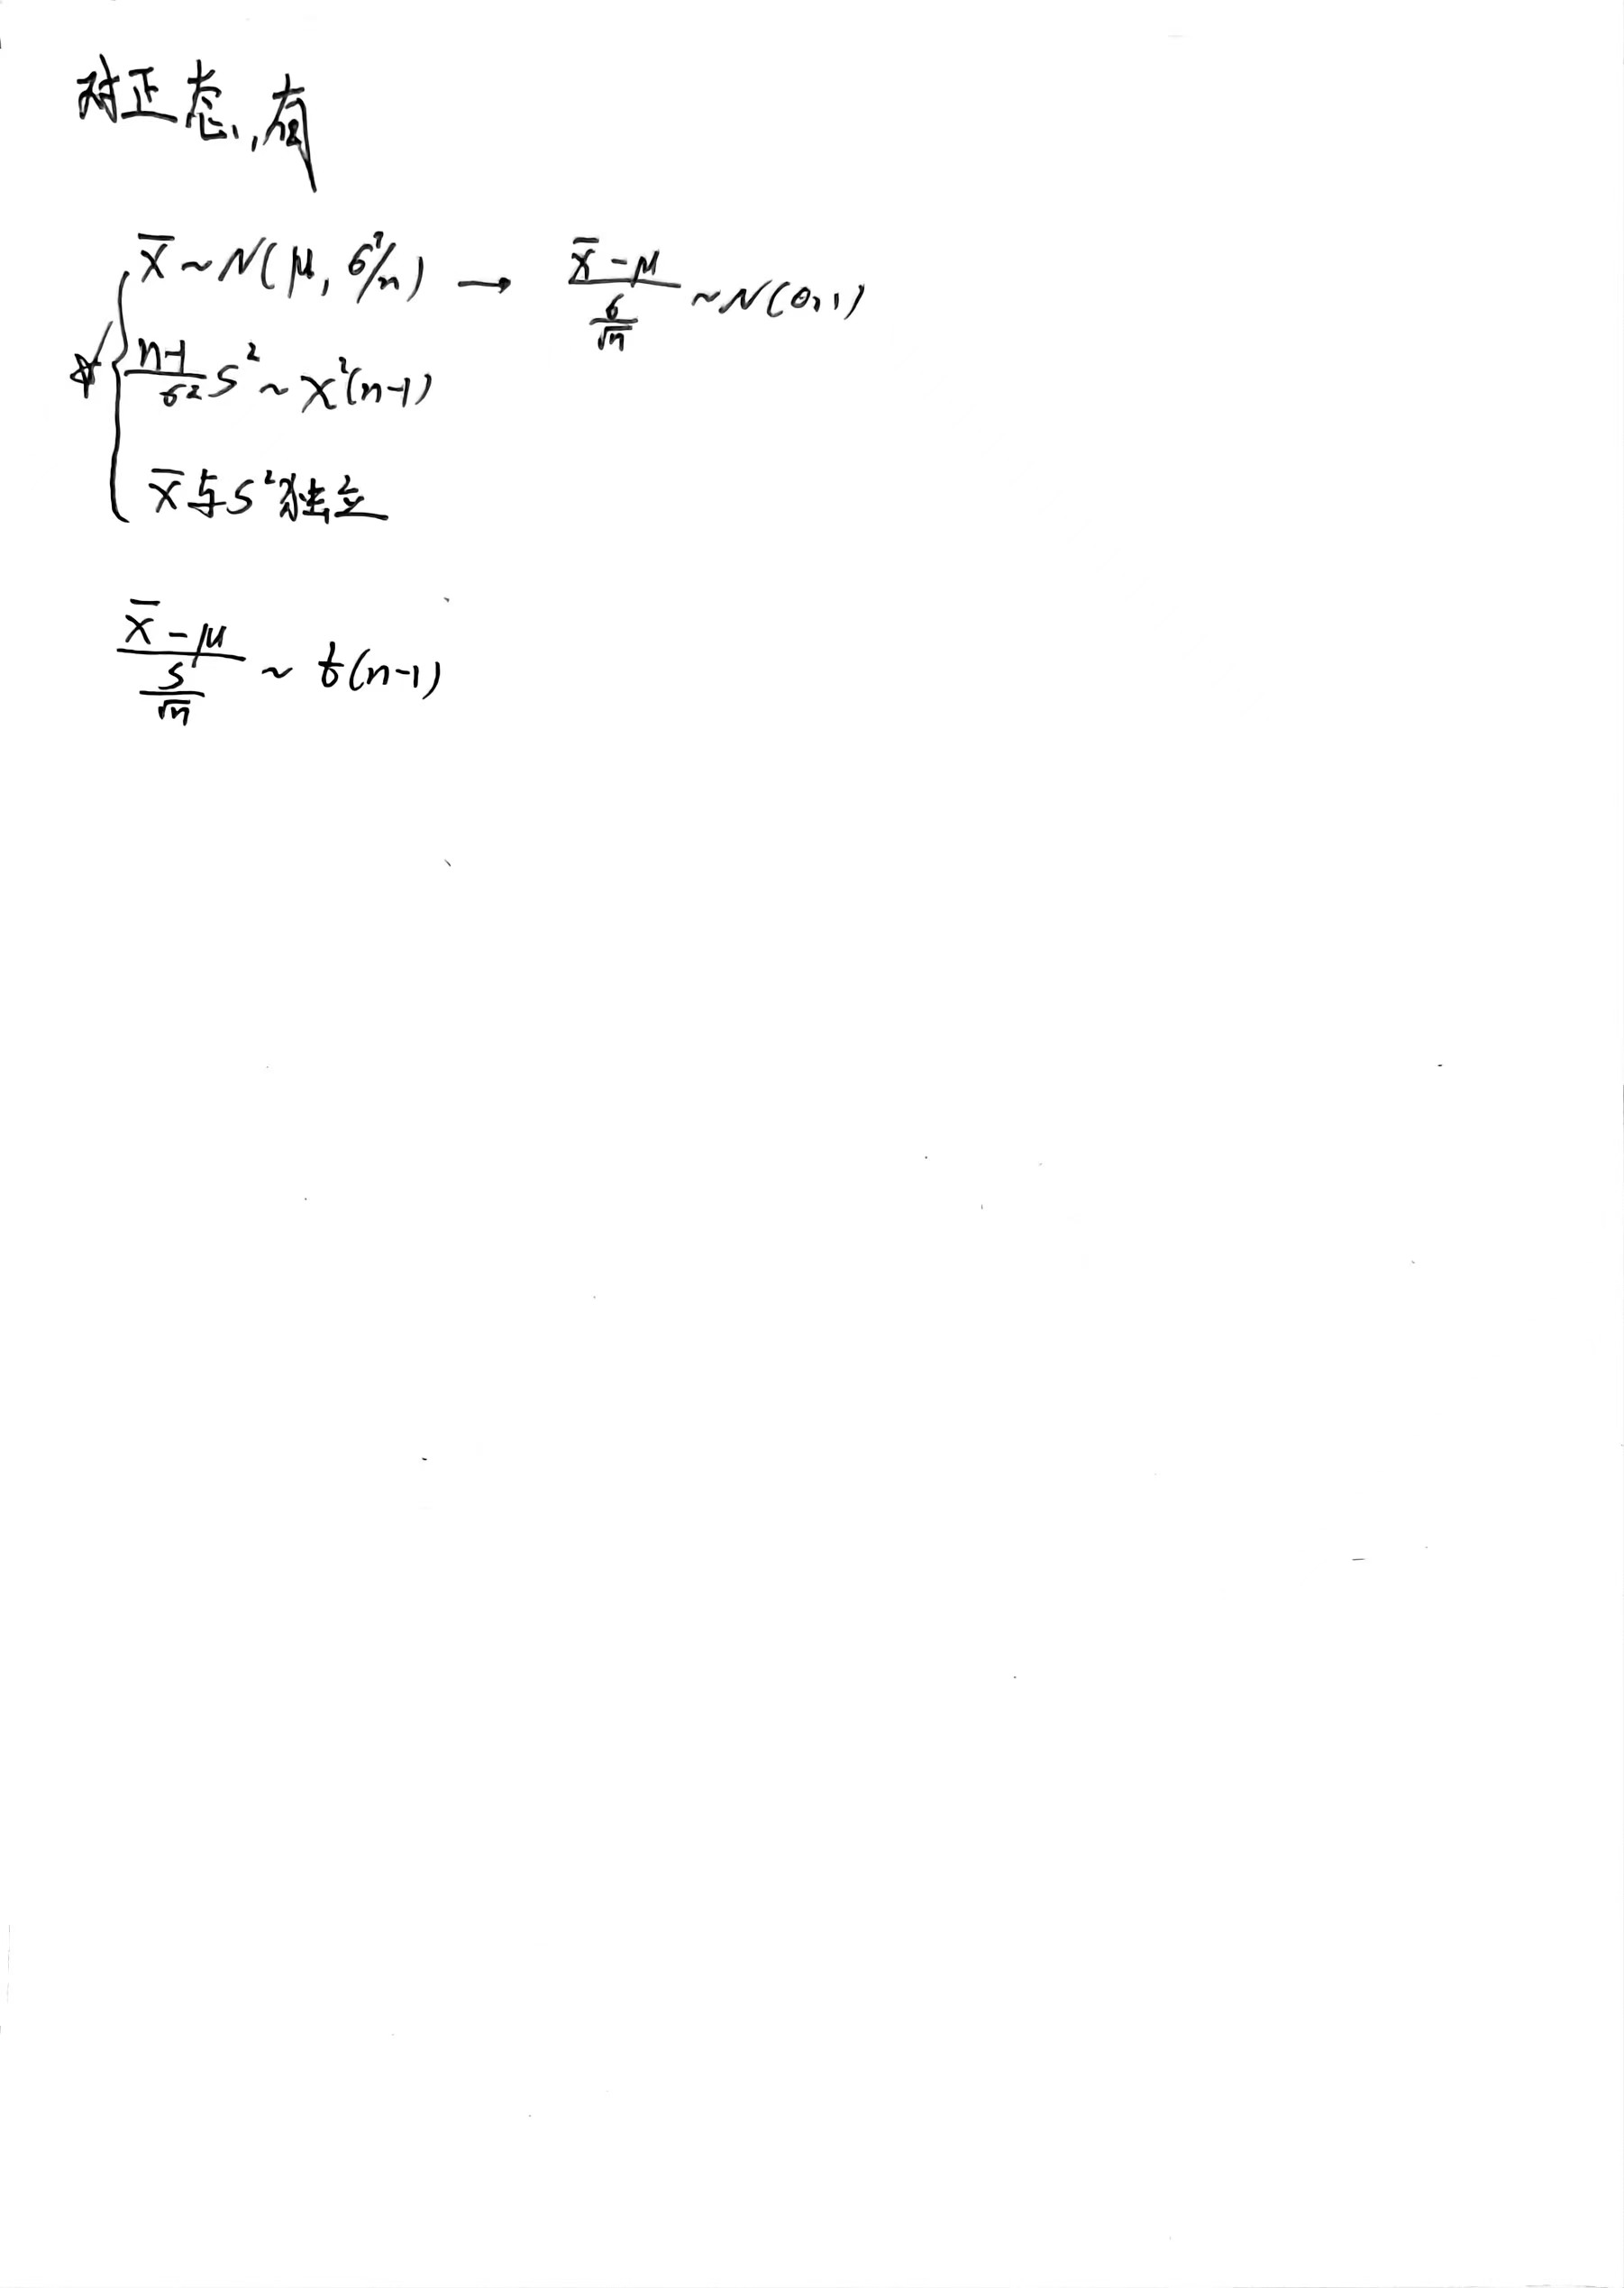 对正态,有
x̄ ~ N(μ, σ²/n) → (x̄ - μ)/(σ/√n) ~ N(0,1)
☆ { (n-1)/σ² S² ~ χ²(n-1)
x̄与S²独立
(x̄ - μ)/(S/√n) ~ t(n-1)